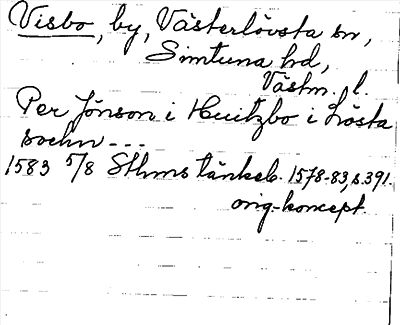 Visbo, by, Västerlövsta sn,
Simtuna hd,
Västm. l.
Per Jönson i Huitzbo i Lösta
sochn ---
1583 5/8 Sthms tänkeb. 1578-83, s. 391.
orig-koncept.